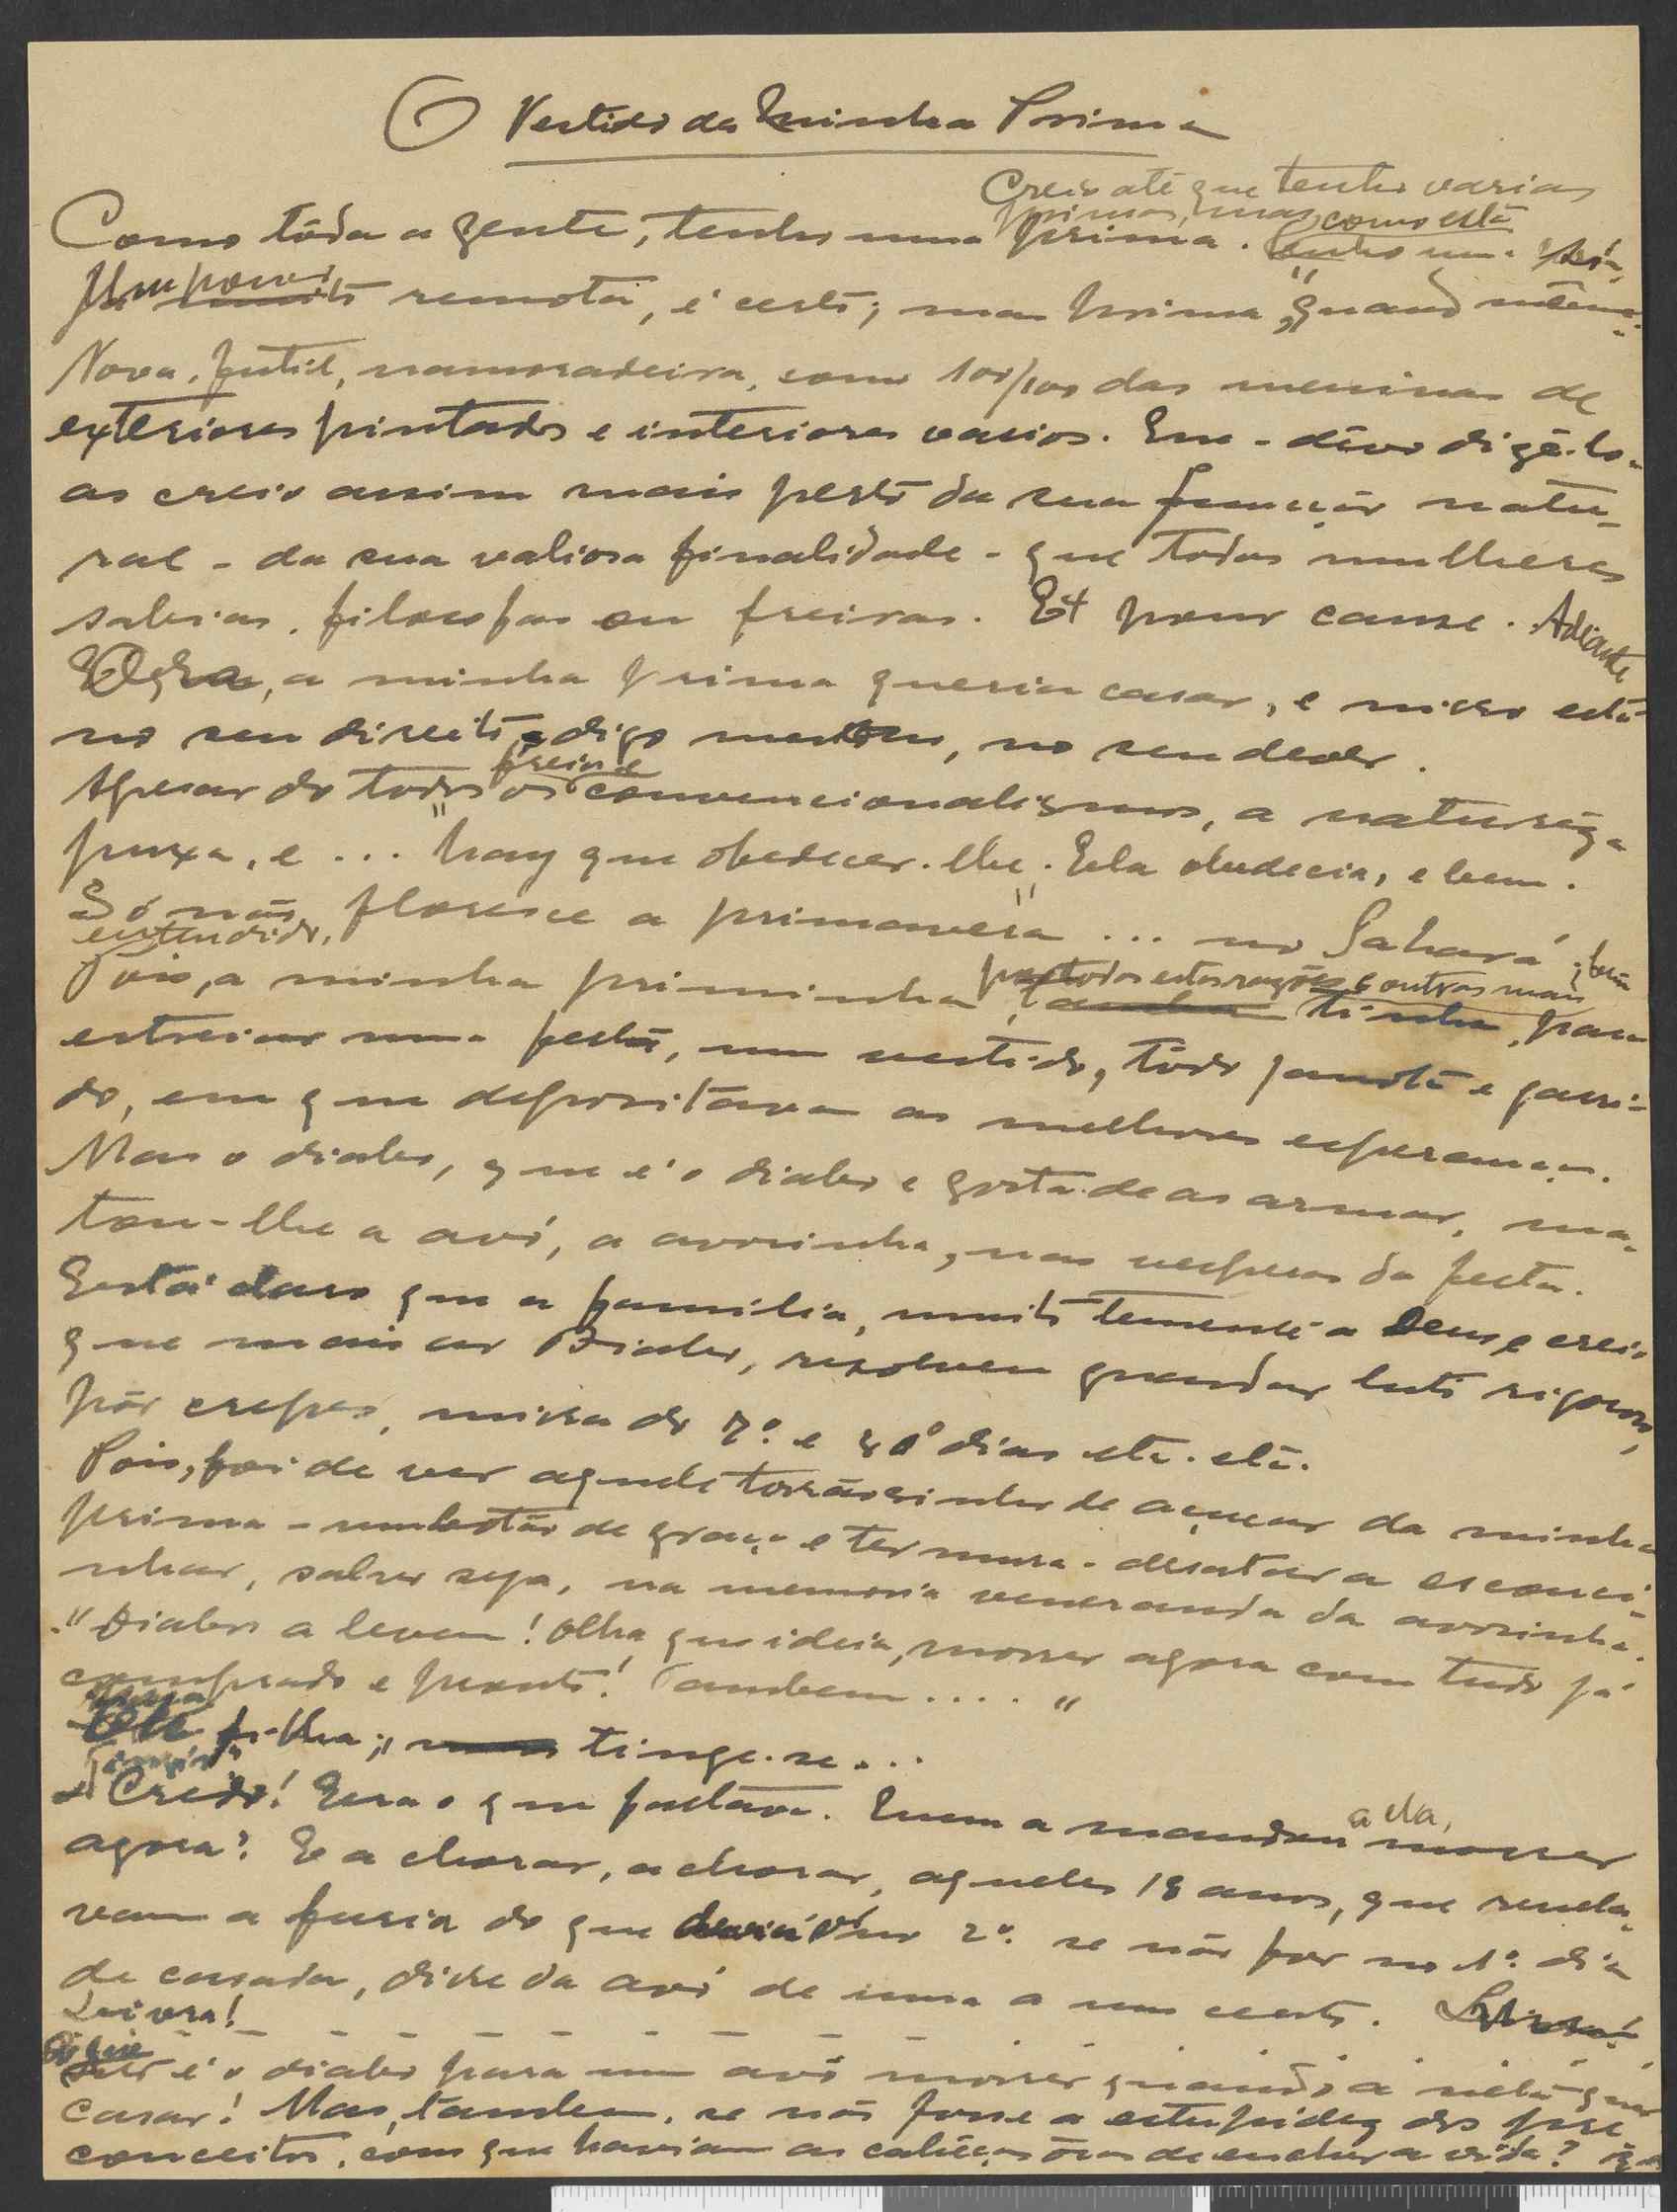 O Vestido da Minha Prima
Creio até que tenho varias
primas, mas como esta
Como tôda a gente, tenho uma prima. Tenho uma. só.
Um pouco muito remota, é certo; mas prima "quand même".
Nova, futil, namoradeira, como 100/100 das meninas de
exteriores pintados e interiores vasios. Eu - devo dizê-lo -
as creio assim mais perto da sua função natu-
ral - da sua valiosa finalidade - que todas mulheres
sabias, filosofas ou freiras. Et pour cause. Adiante
Ora, a minha prima queria casar, e nisso está
no seu direito, digo melhor, no seu dever.
freios e
Apesar de todos os convencionalismos, a naturêza
puxa, e ... "hay que obedecer-lhe". Ela obedecia, e bem.
Só não floresce a primavera ... no Sahará;
entendido.
por todas estas razões e outras mais
Pois, a minha priminha, tinha, para
estreiar numa festa, um vestido, todo janota e garri-
do, em que depositava as melhores esperanças.
Mas o diabo, que é o diabo e gosta de as armar, ma-
tou-lhe a avó, a avósinha, nas vesperas da festa.
Está claro que a familia, muito temente a Deus e creio
que mais ao Diabo, resolveu guardar luto rigoroso,
pôr crepes, missa do 7º. e 30º dias etc. etc.
Pois, foi de ver aquele torrãosinho de açucar da minha
prima - um botão de graça e ternura - desatar a escouci-
nhar, salvo seja, na memoria veneranda da avósinha.
- "Diabos a levem! Olha, que ideia, morrer agora com tudo já
comprado e pronto! Tambem .... "
filha; tinge-se...
- Credo! Era o que faltava. Quem a mandou a ela, morrer
agora? E a chorar, a chorar, aqueles 18 anos, que revela-
vam a furia do que haviá no 2º. se não for no 1º. dia
de casada, disse da avó de uma a um cento.
Livra!
O que é o diabo para um avó morrer quando a neta quer
casar! Mas, tambem, se não fosse a estupidez dos pre-
conceitos, com que haviam as cabeças ôcas de encher a vida?